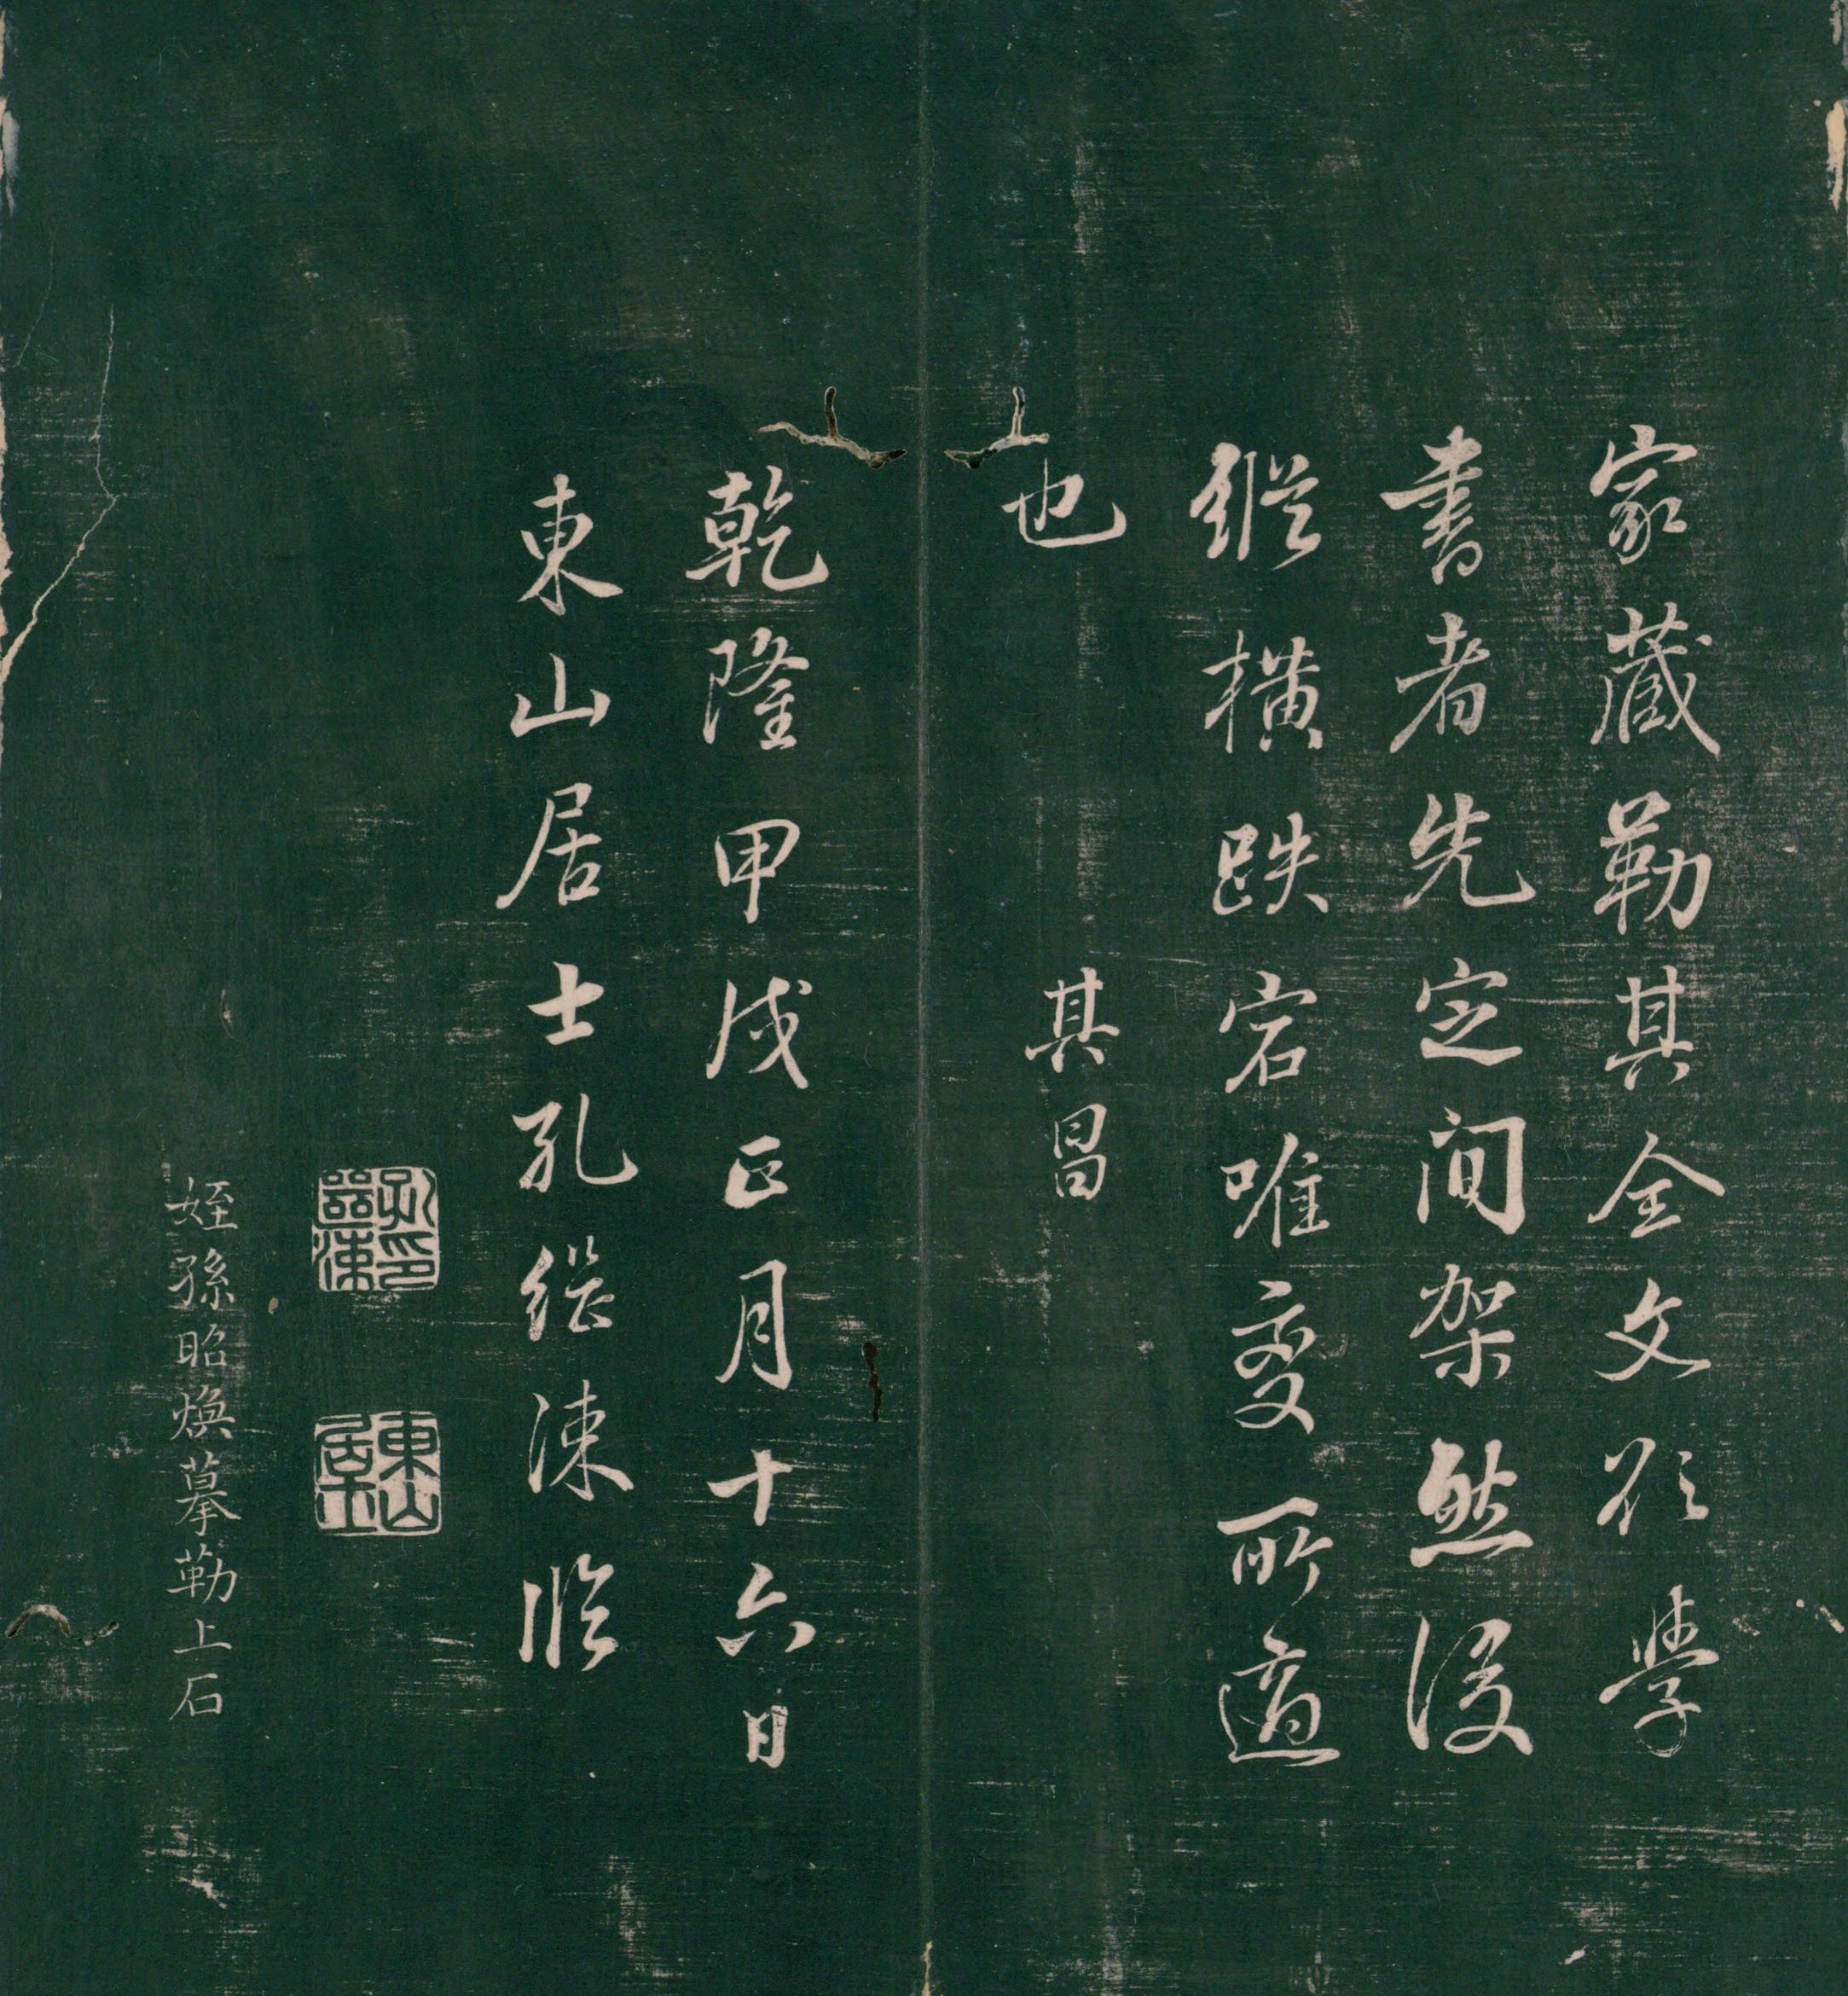 家藏勒其全文欲學
書者先定間架然後
縱横跌宕唯變所適
也 其昌
乾隆甲戌正月十六日
東山居士孔繼涑臨
孔印繼涑
東山居士
姪孫昭焕摹勒上石